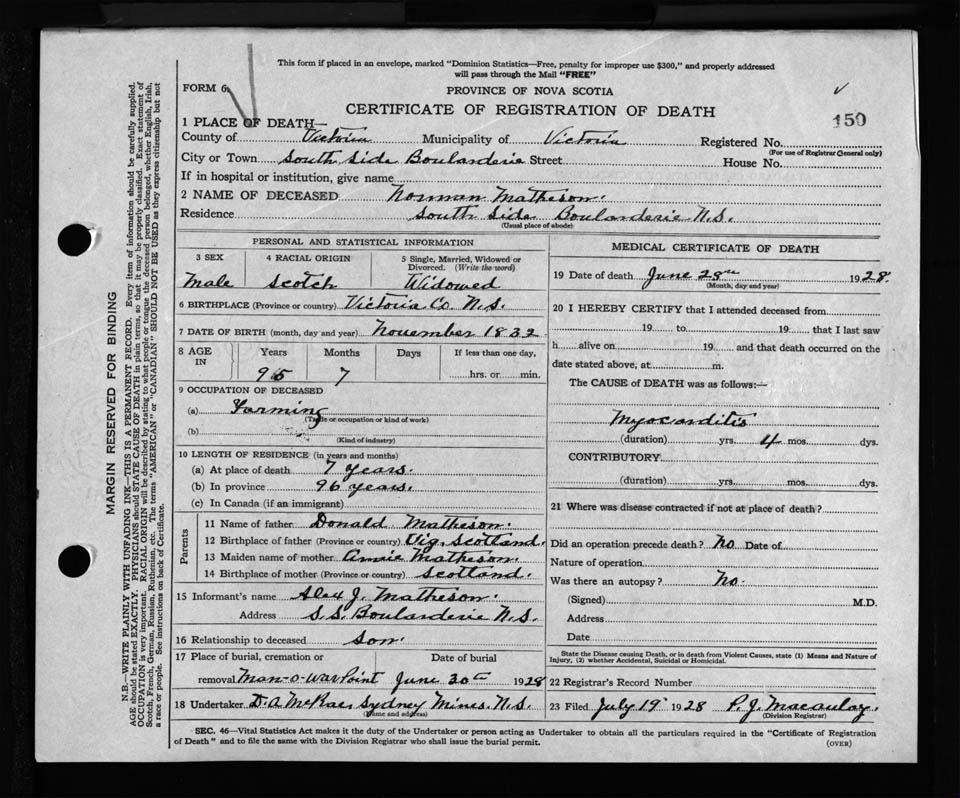 This form if placed in an envelope, marked "Dominion Statistics—Free, penalty for improper use $300," and properly addressed
will pass through the Mail "FREE"
FORM 6
PROVINCE OF NOVA SCOTIA
CERTIFICATE OF REGISTRATION OF DEATH
150
1 PLACE OF DEATH—
County of Victoria Municipality of Victoria Registered No.
(For use of Registrar General only)
City or Town South Side Boularderie Street House No.
If in hospital or institution, give name
2 NAME OF DECEASED Norman Matheson.
Residence South Side Boularderie N.S.
(Usual place of abode)
PERSONAL AND STATISTICAL INFORMATION
3 SEX 4 RACIAL ORIGIN 5 Single, Married, Widowed or Divorced. (Write the word)
Male Scotch Widowed
6 BIRTHPLACE (Province or country) Victoria Co. N.S.
7 DATE OF BIRTH (month, day and year) November 1832
8 AGE IN Years Months Days If less than one day,
95 7 hrs. or min.
9 OCCUPATION OF DECEASED
(a) Farming
(Trade or occupation or kind of work)
(b)
(Kind of industry)
10 LENGTH OF RESIDENCE (in years and months)
(a) At place of death 7 years.
(b) In province 96 years.
(c) In Canada (if an immigrant)
Parents
11 Name of father Donald Matheson.
12 Birthplace of father (Province or country) Uig, Scotland.
13 Maiden name of mother Annie Matheson.
14 Birthplace of mother (Province or country) Scotland.
15 Informant's name Alex J. Matheson.
Address S.S. Boularderie N.S.
16 Relationship to deceased Son.
17 Place of burial, cremation or Date of burial
removal Man-o-War Point June 30th 1928
18 Undertaker D.A. McRae, Sydney Mines. N.S.
(Name and address)
MEDICAL CERTIFICATE OF DEATH
19 Date of death June 28th 1928.
(Month, day and year)
20 I HEREBY CERTIFY that I attended deceased from
19 to 19 that I last saw
h alive on 19 and that death occurred on the
date stated above, at m.
The CAUSE of DEATH was as follows:—
Myocarditis
(duration) yrs. 4 mos. dys.
CONTRIBUTORY
(duration) yrs. mos. dys.
21 Where was disease contracted if not at place of death?
Did an operation precede death? No Date of
Nature of operation
Was there an autopsy? No.
(Signed) M.D.
Address
Date
State the Disease causing Death, or in death from Violent Causes, state (1) Means and Nature of
Injury, (2) whether Accidental, Suicidal or Homicidal.
22 Registrar's Record Number
23 Filed July 19 1928 P.J. Macaulay.
(Division Registrar)
SEC. 46—Vital Statistics Act makes it the duty of the Undertaker or person acting as Undertaker to obtain all the particulars required in the "Certificate of Registration
of Death" and to file the same with the Division Registrar who shall issue the burial permit.
(OVER)
MARGIN RESERVED FOR BINDING
N.B.—WRITE PLAINLY WITH UNFADING INK—THIS IS A PERMANENT RECORD. Every item of information should be carefully supplied.
AGE should be stated EXACTLY. PHYSICIANS should STATE CAUSE OF DEATH in plain terms, so that it may be properly classified. Exact statement of
OCCUPATION is very important. RACIAL ORIGIN will be described by stating to what people or tongue the deceased person belonged, whether English, Irish,
Scotch, French, German, Russian, Ruthenian, etc. The terms "AMERICAN" or "CANADIAN" SHOULD NOT BE USED as they express citizenship but not
a race or people. See instructions on back of Certificate.